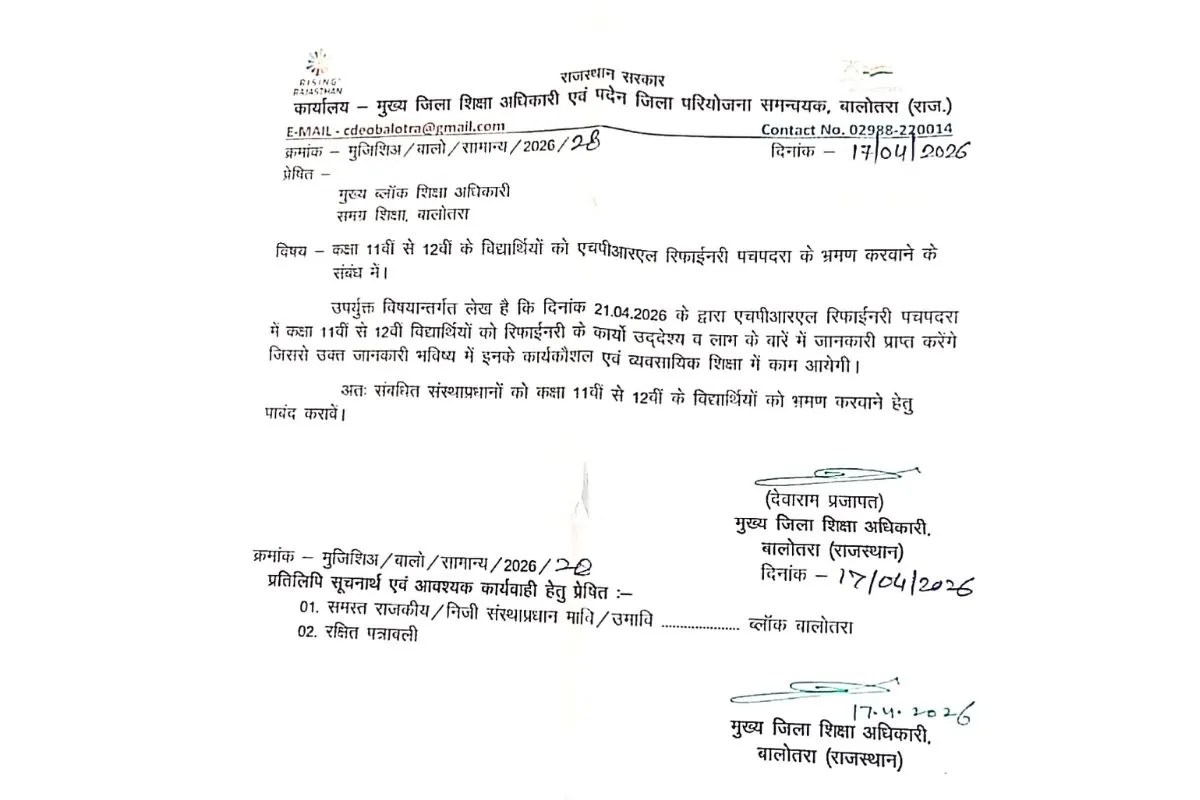 RISING
RAJASTHAN
राजस्थान सरकार
कार्यालय – मुख्य जिला शिक्षा अधिकारी एवं पदेन जिला परियोजना समन्वयक, बालोतरा (राज.)
E-MAIL - cdeobalotra@gmail.com Contact No. 02988-220014
क्रमांक – मुजिशिअ/बालो/सामान्य/2026/28 दिनांक – 17/04/2026
प्रेषित –
मुख्य ब्लॉक शिक्षा अधिकारी
समग्र शिक्षा, बालोतरा
विषय – कक्षा 11वीं से 12वीं के विद्यार्थियों को एचपीआरएल रिफाईनरी पचपदरा के भ्रमण करवाने के
संबंध में।
उपर्युक्त विषयान्तर्गत लेख है कि दिनांक 21.04.2026 के द्वारा एचपीआरएल रिफाईनरी पचपदरा
में कक्षा 11वीं से 12वीं विद्यार्थियों को रिफाईनरी के कार्यो उद्देश्य व लाभ के बारें में जानकारी प्राप्त करेंगे
जिससे उक्त जानकारी भविष्य में इनके कार्यकौशल एवं व्यवसायिक शिक्षा में काम आयेगी।
अतः संबधित संस्थाप्रधानों को कक्षा 11वीं से 12वीं के विद्यार्थियों को भ्रमण करवाने हेतु
पाबंद करावें।
(देवाराम प्रजापत)
मुख्य जिला शिक्षा अधिकारी,
बालोतरा (राजस्थान)
क्रमांक – मुजिशिअ/बालो/सामान्य/2026/28 दिनांक – 17/04/2026
प्रतिलिपि सूचनार्थ एवं आवश्यक कार्यवाही हेतु प्रेषित :–
01. समस्त राजकीय/निजी संस्थाप्रधान मावि/उमावि ..................... ब्लॉक बालोतरा
02. रक्षित पत्रावली
17.4.2026
मुख्य जिला शिक्षा अधिकारी,
बालोतरा (राजस्थान)